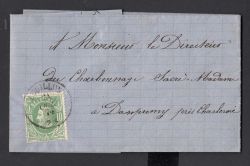 A Monsieur le Directeur
du Charbonnage Sacré-Madame
à Dampremy près Charleroi